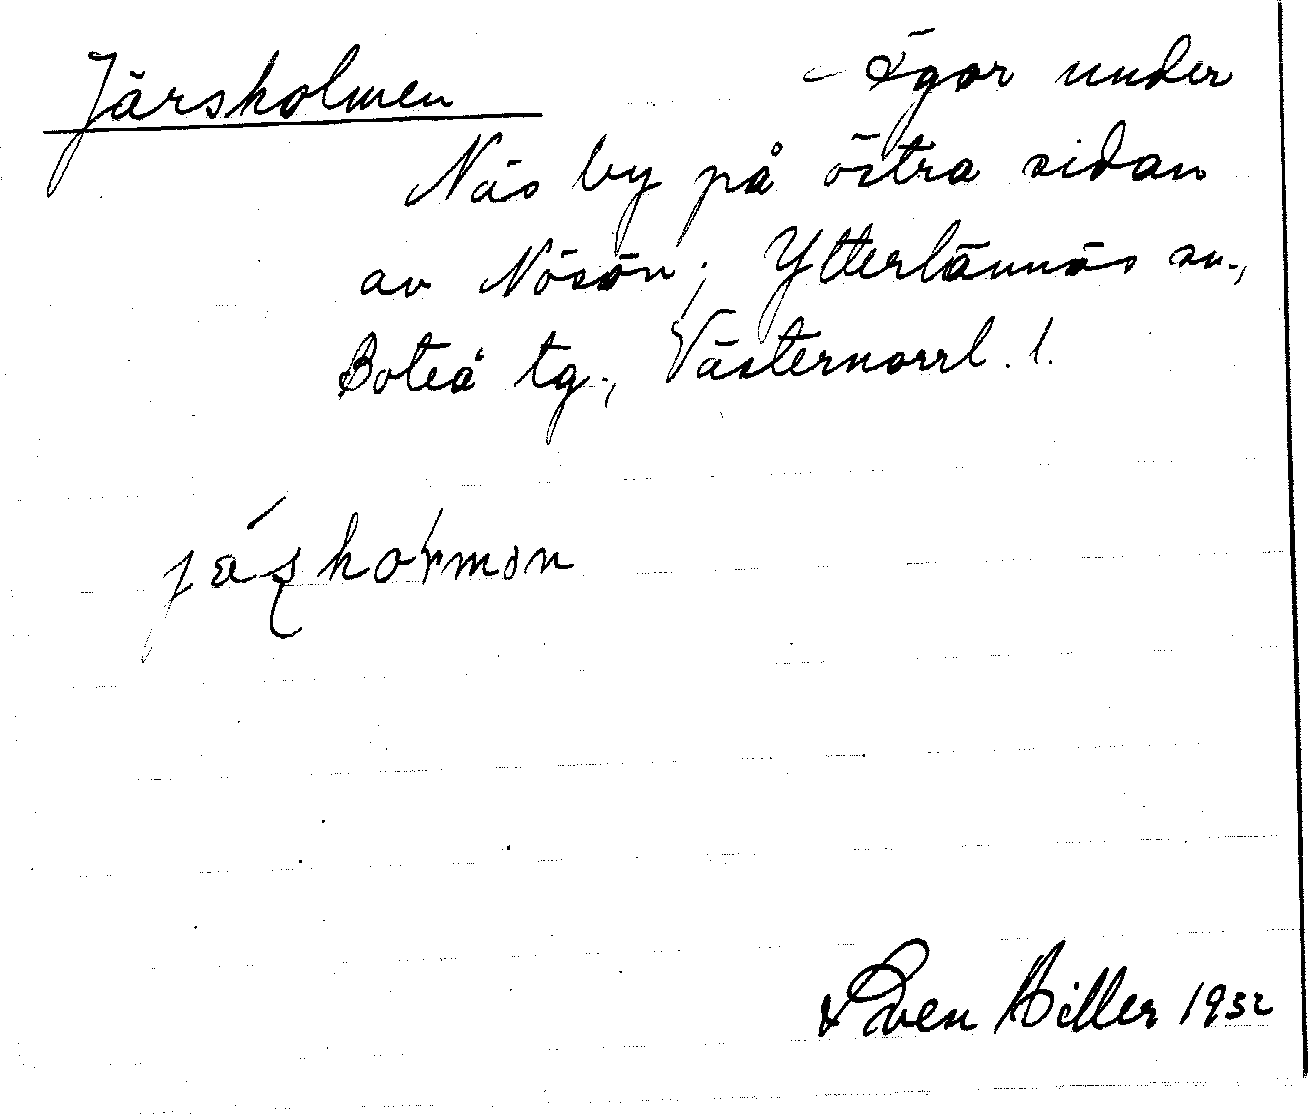 Järsholmen – Ägor under
Näs by på östra sidan
av Näsön; Ytterlännäs sn.,
Boteå tg., Västernorrl. l.
Sven Hiller 1932